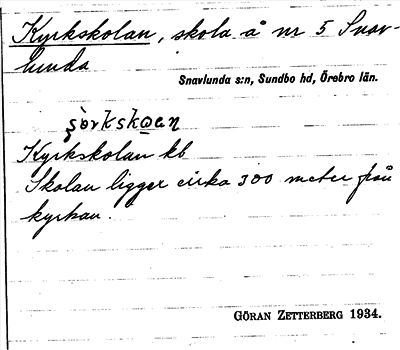 Kyrkskolan, skola å nr 5 Snav-
lunda
Snavlunda s:n, Sundbo hd, Örebro län.
Kyrkskolan kb
Skolan ligger cirka 300 meter från
kyrkan.
GÖRAN ZETTERBERG 1934.